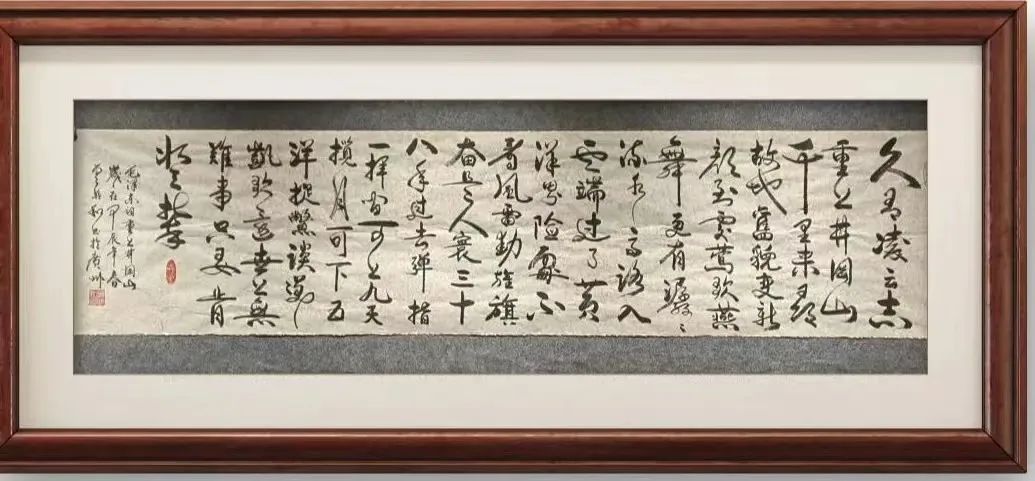 久有凌云志
重上井岡山
千里来尋
故地舊貌变新
颜到處莺歌燕
舞更有潺〻
流水高路入
云端过了黄
洋界险處不
看风雷動旌旗
奋是人寰三十
八年过去弹指
一挥间可上九天
揽月可下五
洋捉鳖谈笑
凱歌還世上無
難事只要肯
登攀
毛泽东词重上井岡山
歲在甲辰年春
书於廣州